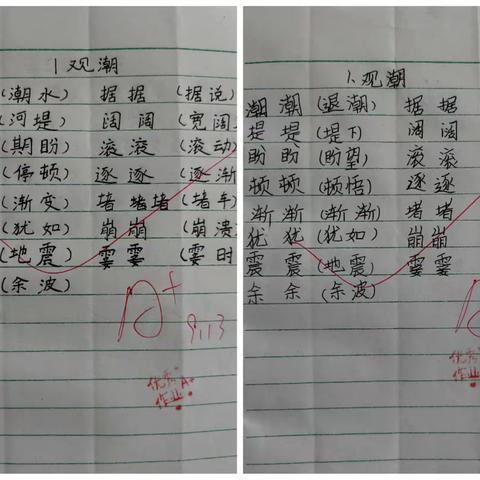 1观潮
(潮水) 据据 (据说)
(河堤) 阔阔 (宽阔
(期盼) 滚滚 (滚动)
(停顿) 逐逐 (逐渐
(渐变) 堵堵堵 (堵车)
(犹如) 崩崩 (崩溃
(地震) 霎霎 (霎时
(余波)
A+
9.13
优秀A+
作业
1.观潮
潮潮 (退潮) 据据
堤堤 (堤下) 阔阔
盼盼 (盼望) 滚滚
顿顿 (顿悟) 逐逐
渐渐 (渐渐) 堵堵
犹犹 (犹如) 崩崩
震震 (地震) 霎霎
余余 (余波)
优秀
作业